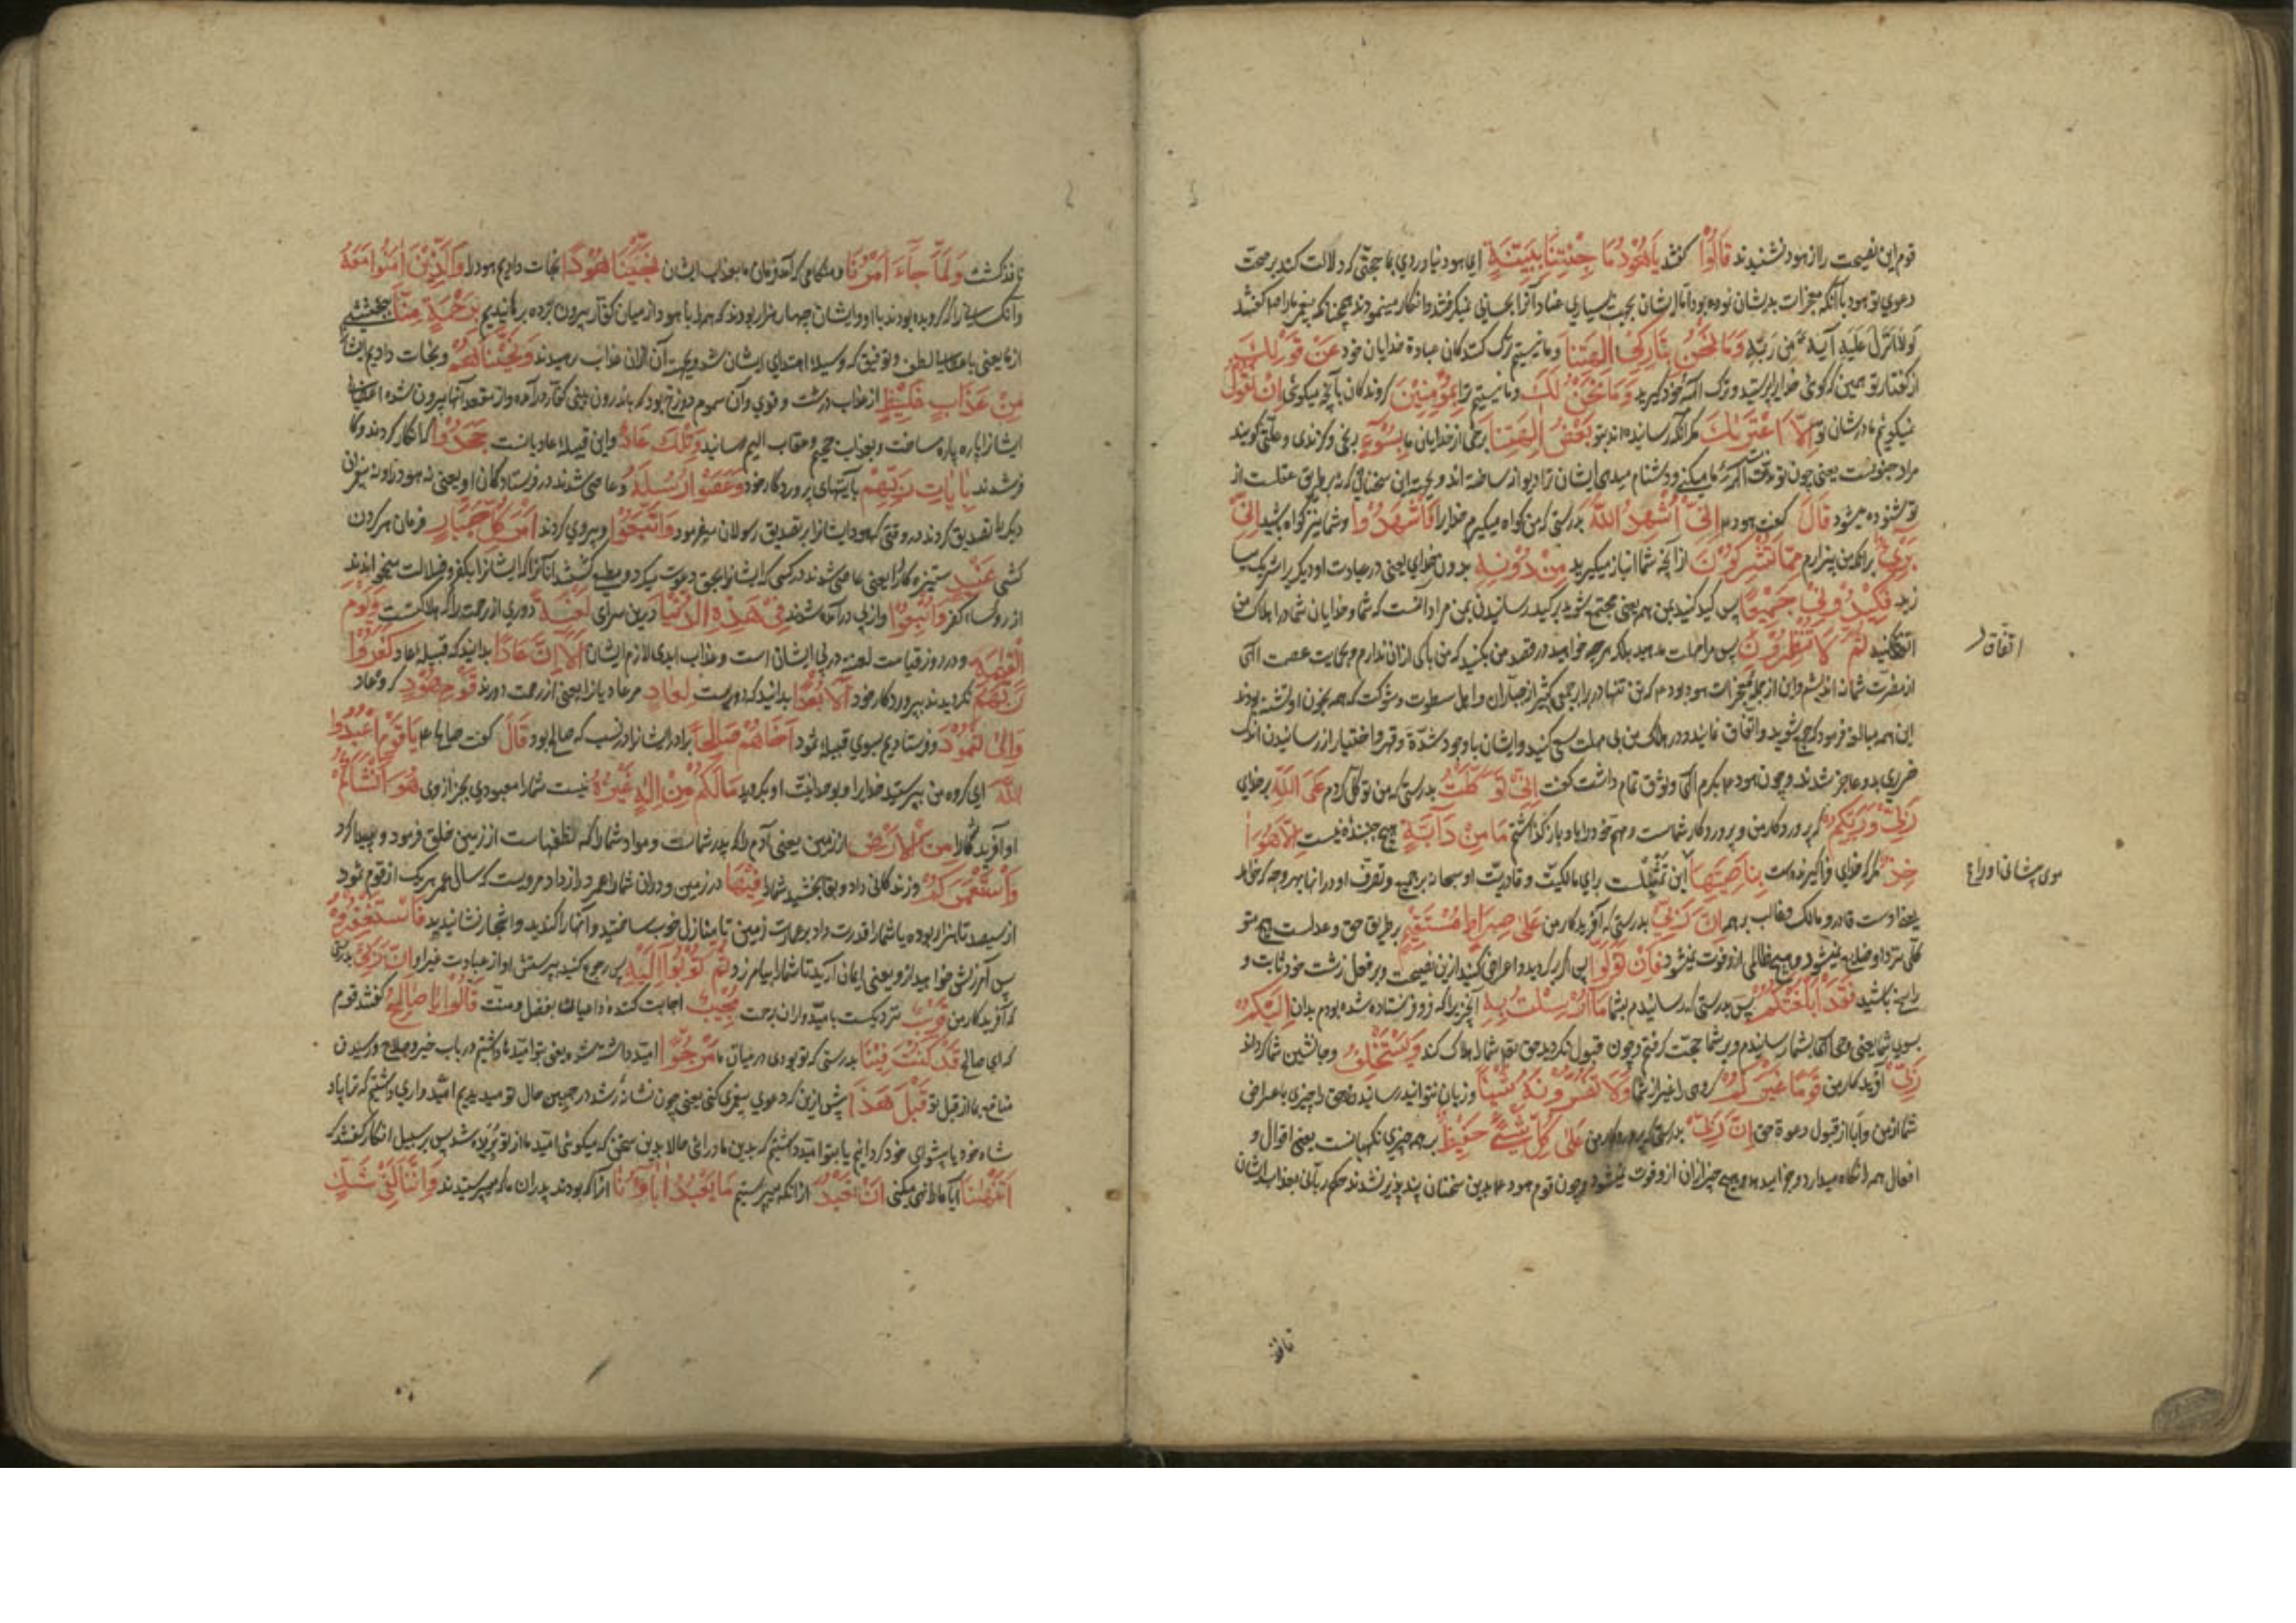 قوم این نصیحت را از هود نشنیدند قَالُوْا گفتند يَاهُوْدُ مَا جِئْتَنَا بِبَيِّنَةٍ ای هود نیاوردی بما حجتی که دلالت کند بر صحت
دعوی تو هود با آنکه معجزات بدیشان نموده بود اما ایشان بجهت بسیاری عناد آنرا بحسابی نمیگرفتند و انکار مینمودند همچنانکه پیغمبر ما را صلعم گفتند
لَوْلَا نُزِّلَ عَلَيْهِ آيَةٌ مِنْ رَبِّهِ وَمَا نَحْنُ بِتَارِكِيْ اٰلِهَتِنَا و ما نیستیم ترک کنندگان عبادة خدایان خود عَنْ قَوْلِكَ
از گفتار تو همین که گوئی خدایرا پرستید و ترک آلهه خود گیرید وَمَا نَحْنُ لَكَ و ما نیستیم ترا بِمُؤْمِنِيْنَ گروندگان بآنچه میگوئی اِنْ نَقُوْلُ
نمیگوئیم ما در شان تو اِلَّا اعْتَرٰىكَ مگر آنکه رسانیده اند بتو بَعْضُ اٰلِهَتِنَا برخی از خدایان ما بِسُوْءٍ رنجی و گزندی و علتی گویند
مراد جنونست یعنی چون تو مذمت آلهه ما میکنی و دشنام میدهی ایشان ترا دیوانه ساخته اند و بجهت این سخنانی که نه بر طریق عقلست از
تو شنوده میشود قَالَ گفت هود ع اِنِّيْ اُشْهِدُ اللّٰهَ بدرستی که من گواه میگیرم خدایرا وَاشْهَدُوْا و شما نیز گواه باشید اَنِّيْ
بَرِيْءٌ برانکه من بیزارم مِمَّا تُشْرِكُوْنَ از آنچه شما انباز میگیرید مِنْ دُوْنِهِ بدون خدای یعنی در عبادت او دیگریرا شریک میسا
زید فَكِيْدُوْنِيْ جَمِيْعًا پس کید کنید بمن همه یعنی مجتمع شوید بر کید رسانیدن بمن مراد آنست که شما و خدایان شما در اهلاک من
اتفاق کنید ثُمَّ لَا تُنْظِرُوْنِ پس مرا مهلت مدهید بلکه هرچه خواهید در قصد من بکنید که من باکی ازان ندارم و بحمایت عصمت الهی
از مضرت شما نه اندیشم و این از جمله معجزات هود بود ع که تن تنها در برابر جمعی کثیر از جباران و اهل سطوت و شوکت که همه بخون او تشنه بودند
این همه مبالغه فرمود که جمع شوید و اتفاق نمائید و در هلاک من بی مهلت سعی کنید و ایشان با وجود شدة و قهر و اختیار از رسانیدن اندک
ضرری بدو عاجز شدند و چون هود ع بکرم الهی وثوق تمام داشت گفت اِنِّيْ تَوَكَّلْتُ بدرستی که من توکل کردم عَلَى اللّٰهِ بر خدای
رَبِّيْ وَرَبِّكُمْ که پروردکار من و پروردکار شماست و مهم خود را باو بازگذاشتم مَا مِنْ دَآبَّةٍ هیچ جنبنده نیست اِلَّا هُوَ اٰ
خِذٌ مگر خدای فراگیرنده است بِنَاصِيَتِهَا این تمثیلست برای مالکیّت و قادریّت او سبحانه بر همه و تصرف او در انها بهر وجه که خواهد
یعنی اوست قادر و مالک و غالب بر همه اِنَّ رَبِّيْ بدرستی که آفریدکار من عَلٰى صِرَاطٍ مُسْتَقِيْمٍ بر طریق حق و عدلست هیچ متو
کلی نزد او ضایع نمیشود و هیچ ظالمی از و فوت نمیشود فَاِنْ تَوَلَّوْا پس اگر برگردید و اعراض کنید ازین نصیحت و بر فعل زشت خود ثابت و
راسخ باشید فَقَدْ اَبْلَغْتُكُمْ پس بدرستی که رسانیدم بشما مَا اُرْسِلْتُ بِهٖ آنچیزیرا که فرو فرستاده شده بودم بدان اِلَيْكُمْ
بسوی شما یعنی وحی الهی بشما رسانیدم و بر شما حجت گرفتم و چون قبول نکردید حق تعالی شما را هلاک کند وَيَسْتَخْلِفُ و جانشین شما گرداند
رَبِّيْ آفریدکار من قَوْمًا غَيْرَكُمْ گروهی را غیر از شما وَلَا تَضُرُّوْنَهُ شَيْئًا و زیان نتوانید رسانیدن حق را چیزی باعراض
شما از من و ابا از قبول دعوة حق اِنَّ رَبِّيْ بدرستی که پروردکار من عَلٰى كُلِّ شَيْءٍ حَفِيْظٌ بر همه چیزی نگهبانست یعنی اقوال و
افعال همه را نگاه میدارد و جزا میدهد و هیچ چیز ازان از و فوت نمیشود و چون قوم هود ع بدین سخنان پندپذیر نشدند حکم ربانی بعذاب ایشان
اتفاق
موی پیشانی او را ع
نافذ
نافذ گشت وَلَمَّا جَآءَ اَمْرُنَا و هنگامی که آمد فرمان ما بعذاب ایشان نَجَّيْنَا هُوْدًا نجات دادیم هود را وَالَّذِيْنَ اٰمَنُوْا مَعَهُ
و آنکسانیرا که گرویده بودند با او و ایشان چهار هزار بودند که همه را با هود از میان کفار بیرون برده برهانیدیم بِرَحْمَةٍ مِنَّا ببخششی
از ما یعنی باعطاء لطف و توفیق که وسیله اهتدای ایشان شد و بجهت آن ازان عذاب رهیدند وَنَجَّيْنَاهُمْ و نجات دادیم ایشانرا
مِنْ عَذَابٍ غَلِيْظٍ از عذاب درشت و قوی و آن سموم دوزخ بود که باندرون بینی کفار درآمده و از مقعد آنها بیرون شده اعضای
ایشانرا پاره پاره ساخت و بعذاب جحیم و عقاب الیم رسانید وَتِلْكَ عَادٌ و این قبیله عاد یانست جَحَدُوْا که انکار کردند و کا
فر شدند بِاٰيَاتِ رَبِّهِمْ بآیتهای پروردکار خود وَعَصَوْا رُسُلَهُ و عاصی شدند در فرستادکان او یعنی نه هود را و نه پیغمبران
دیگر را تصدیق کردند در وقتی که هود ایشانرا بر تصدیق رسولان میفرمود وَاتَّبَعُوْا و پیروی کردند اَمْرَ كُلِّ جَبَّارٍ فرمان هر گردن
کشی عَنِيْدٍ ستیزه کار را یعنی عاصی شدند در کسی که ایشانرا بحق دعوت میکرد و مطیع گشتند آنانرا که ایشانرا بکفر و ضلالت میخواندند
از رؤساء کفر وَاُتْبِعُوْا و از پی درآمده شدند فِيْ هٰذِهِ الدُّنْيَا درین سرای لَعْنَةً دوری از رحمت را که هلاکتست وَيَوْمَ
الْقِيٰمَةِ و در روز قیامت لعنت در پی ایشان است و عذاب ابدی لازم ایشان اَلَا اِنَّ عَادًا بدانید که قبیله عاد كَفَرُوْا
رَبَّهُمْ نگرویدند بپروردکار خود اَلَا بُعْدًا بدانید که دوریست لِعَادٍ مر عادیانرا یعنی از رحمت دورند قَوْمِ هُوْدٍ گروه عاد
وَاِلٰى ثَمُوْدَ و فرستادیم بسوی قبیله ثمود اَخَاهُمْ صَالِحًا برادر ایشانرا در نسب که صالح بود قَالَ گفت صالح ع يَاقَوْمِ اعْبُدُوا
اللّٰهَ ای گروه من بپرستید خدایرا و بوحدانیت او بگروید مَا لَكُمْ مِنْ اِلٰهٍ غَيْرُهُ نیست شما را معبودی بجز از وی هُوَ اَنْشَاَكُمْ
او آفرید شما را مِنَ الْاَرْضِ از زمین یعنی آدم را که پدر شماست و مواد شما را که نطفهاست از زمین خلق فرمود و پیدا کرد
وَاسْتَعْمَرَكُمْ و زندگانی داد و بقا بخشید شما را فِيْهَا در زمین و دران شما را عمر دراز داد مرویست که سال عمر هر یک از قوم ثمود
از سیصد تا هزار بوده یا شما را قدرت داد بر عمارت زمین تا منازل خوب ساختید و انهار کندید و اشجار نشانیدید فَاسْتَغْفِرُوْهُ
پس آمرزش خواهید از و یعنی ایمان آرید تا شما را بیامرزد ثُمَّ تُوْبُوْا اِلَيْهِ پس رجوع کنید بپرستش او از عبادت غیر او اِنَّ رَبِّيْ بدرستی
که آفریدکار من قَرِيْبٌ نزدیکست بامیدواران برحمت مُجِيْبٌ اجابت کننده داعیانرا بفضل و منت قَالُوْا يَاصَالِحُ گفتند قوم
که ای صالح قَدْ كُنْتَ فِيْنَا بدرستی که تو بودی در میان ما مَرْجُوًّا امید داشته شده یعنی بتو امیدها داشتیم در باب خیر و صلاح و رسیدن
منافع بما از قبل تو قَبْلَ هٰذَا پیش ازین که دعوی پیغمبری کنی یعنی چون نشانه رشد در جبین حال تو میدیدیم امیدواری داشتیم که ترا پاد
شاه خود یا پیشوای خود گردانیم یا بتو امید داشتیم که بدین ما درائی حالا بدین سخن که میگوئی امید ما از تو بریده شد پس بر سبیل انکار گفتند که
اَتَنْهٰىنَا آیا ما را نهی میکنی اَنْ نَعْبُدَ از انکه بپرستیم مَا يَعْبُدُ اٰبَآؤُنَا آنرا که بودند پدران ما که میپرستیدند وَاِنَّنَا لَفِيْ شَكٍّ